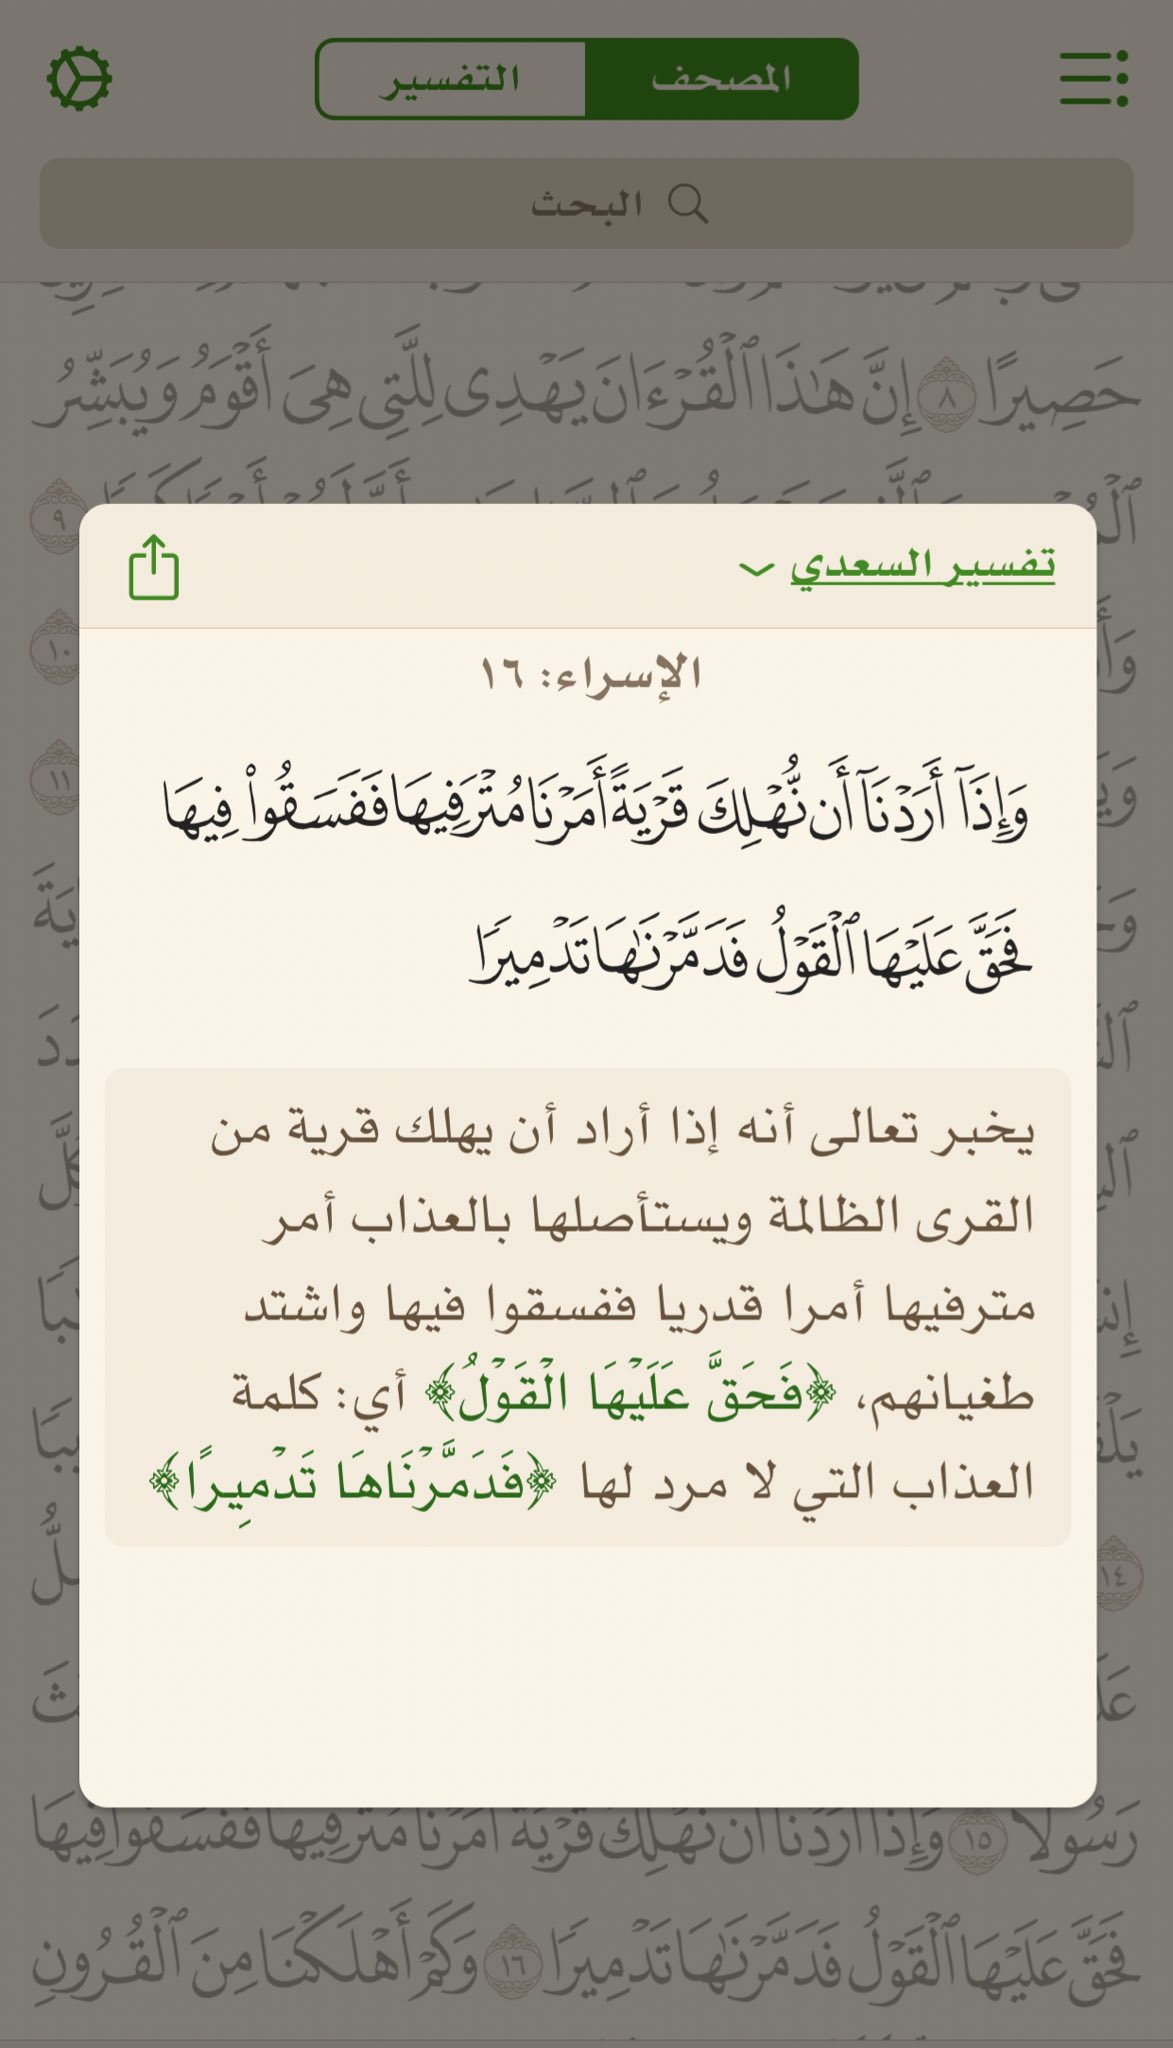 المصحف التفسير
البحث
حَصِيرًا ٨ إِنَّ هَٰذَا ٱلْقُرْءَانَ يَهْدِى لِلَّتِى هِىَ أَقْوَمُ وَيُبَشِّرُ
٩
تفسير السعدي
١٠
الإسراء: ١٦
١١
وَإِذَآ أَرَدْنَآ أَن نُّهْلِكَ قَرْيَةً أَمَرْنَا مُتْرَفِيهَا فَفَسَقُوا۟ فِيهَا
فَحَقَّ عَلَيْهَا ٱلْقَوْلُ فَدَمَّرْنَٰهَا تَدْمِيرًا
يخبر تعالى أنه إذا أراد أن يهلك قرية من
القرى الظالمة ويستأصلها بالعذاب أمر
مترفيها أمرا قدريا ففسقوا فيها واشتد
طغيانهم، ﴿فَحَقَّ عَلَيْهَا الْقَوْلُ﴾ أي: كلمة
العذاب التي لا مرد لها ﴿فَدَمَّرْنَاهَا تَدْمِيرًا﴾
١٤
رَسُولًا ١٥ وَإِذَآ أَرَدْنَآ أَن نُّهْلِكَ قَرْيَةً أَمَرْنَا مُتْرَفِيهَا فَفَسَقُوا۟ فِيهَا
فَحَقَّ عَلَيْهَا ٱلْقَوْلُ فَدَمَّرْنَٰهَا تَدْمِيرًا ١٦ وَكَمْ أَهْلَكْنَا مِنَ ٱلْقُرُونِ